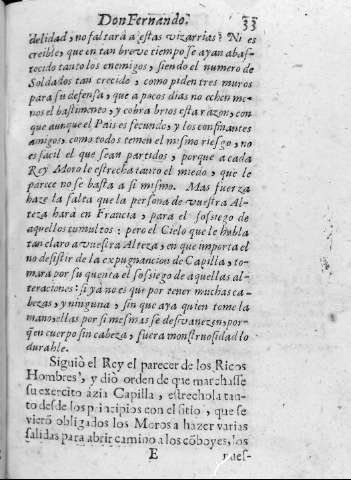 Don Fernando. 33
delidad, no faltarà a estas vizarrias? Ni es
creible, que en tan breve tiempo se ayan abas-
tecido tanto los enemigos, siendo el numero de
Soldados tan crecido, como piden tres muros
para su defensa, que a pocos dias no echen me-
nos el bastimento, y cobra brios esta razon, con
que aunque el Pais es fecundo, y los confinantes
amigos, como todos temen el mismo riesgo, no
es facil el que sean partidos, porque a cada
Rey Moro le estrecha tanto el miedo, que le
parece no se basta a si mismo. Mas fuerza
haze la falta que la persona de vuestra Al-
teza harà en Francia, para el sossiego de
aquellos tumultos: pero el Cielo que le habla
tan claro a vuestra Alteza, en que importa el
no desistir de la expugnancion de Capilla, to-
mara por su quenta el sossiego de aquellas al-
teraciones: si ya no es que por tener muchas ca-
bezas, y ninguna, sin que aya quien tome la
mano, ellas por si mesmas se desvanezcan, por-
q̃ en cuerpo sin cabeza, fuera monstruosidad lo
durable.
Siguiò el Rey el parecer de los Ricos
Hombres, y diò orden de que marchasse
su exercito azia Capilla, estrechola tan-
to desde los principios con el sitio, que se
vierõ obligados los Moros a hazer varias
salidas para abrir camino a los cõboyes, los
E naes-